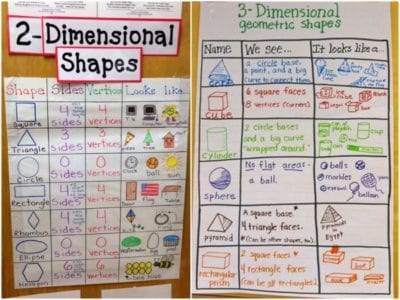 2-Dimensional
Shapes
Shape Sides Vertices Looks like...
Square
4 Sides
4 vertices
T.V.
Triangle
3 Sides
3 vertices
tree
Circle
0 Sides
0 vertices
clock
ball
Sun
Rectangle
4 Sides
4 vertices
Door
flag
Table
Rhombus
4 Sides
4 vertices
Ellipse
0 Sides
0 vertices
Hexagon
6 Sides
6 vertices
bee hive
3-Dimensional
geometric shapes
Name We see... It looks like a...
cone
a circle base,
a point, and a big
curve to connect them.
cube
6 square faces
8 vertices (corners)
ice cube
box
cylinder
2 circle bases
and a big curve
wrapped around.
cup
sphere
No flat areas-
a ball.
balls
marbles
eyeball
balloon
pyramid
A square base *
4 triangle faces.
*(Can be other shapes, too)
pyramid
Egypt
rectangular
prism
2 square faces
4 rectangle faces
(Can be all rectangles)